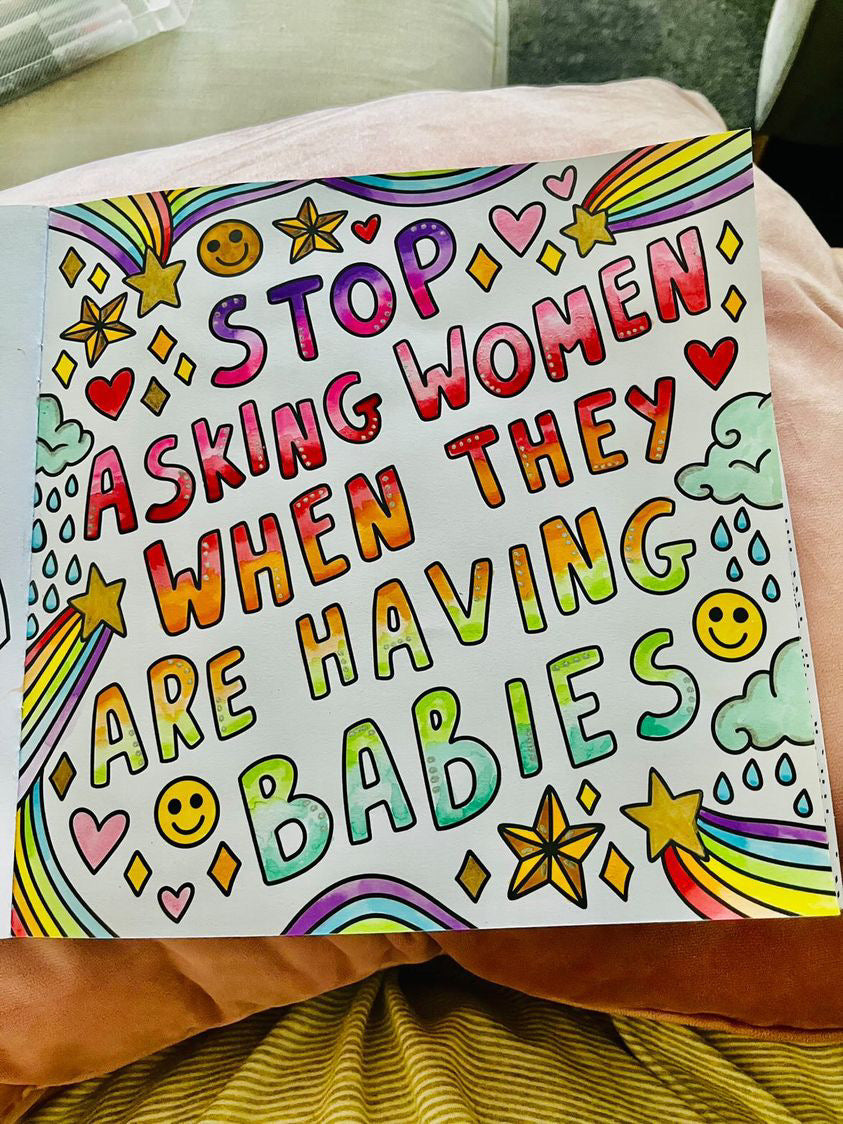 STOP
ASKING WOMEN
WHEN THEY
ARE HAVING
BABIES